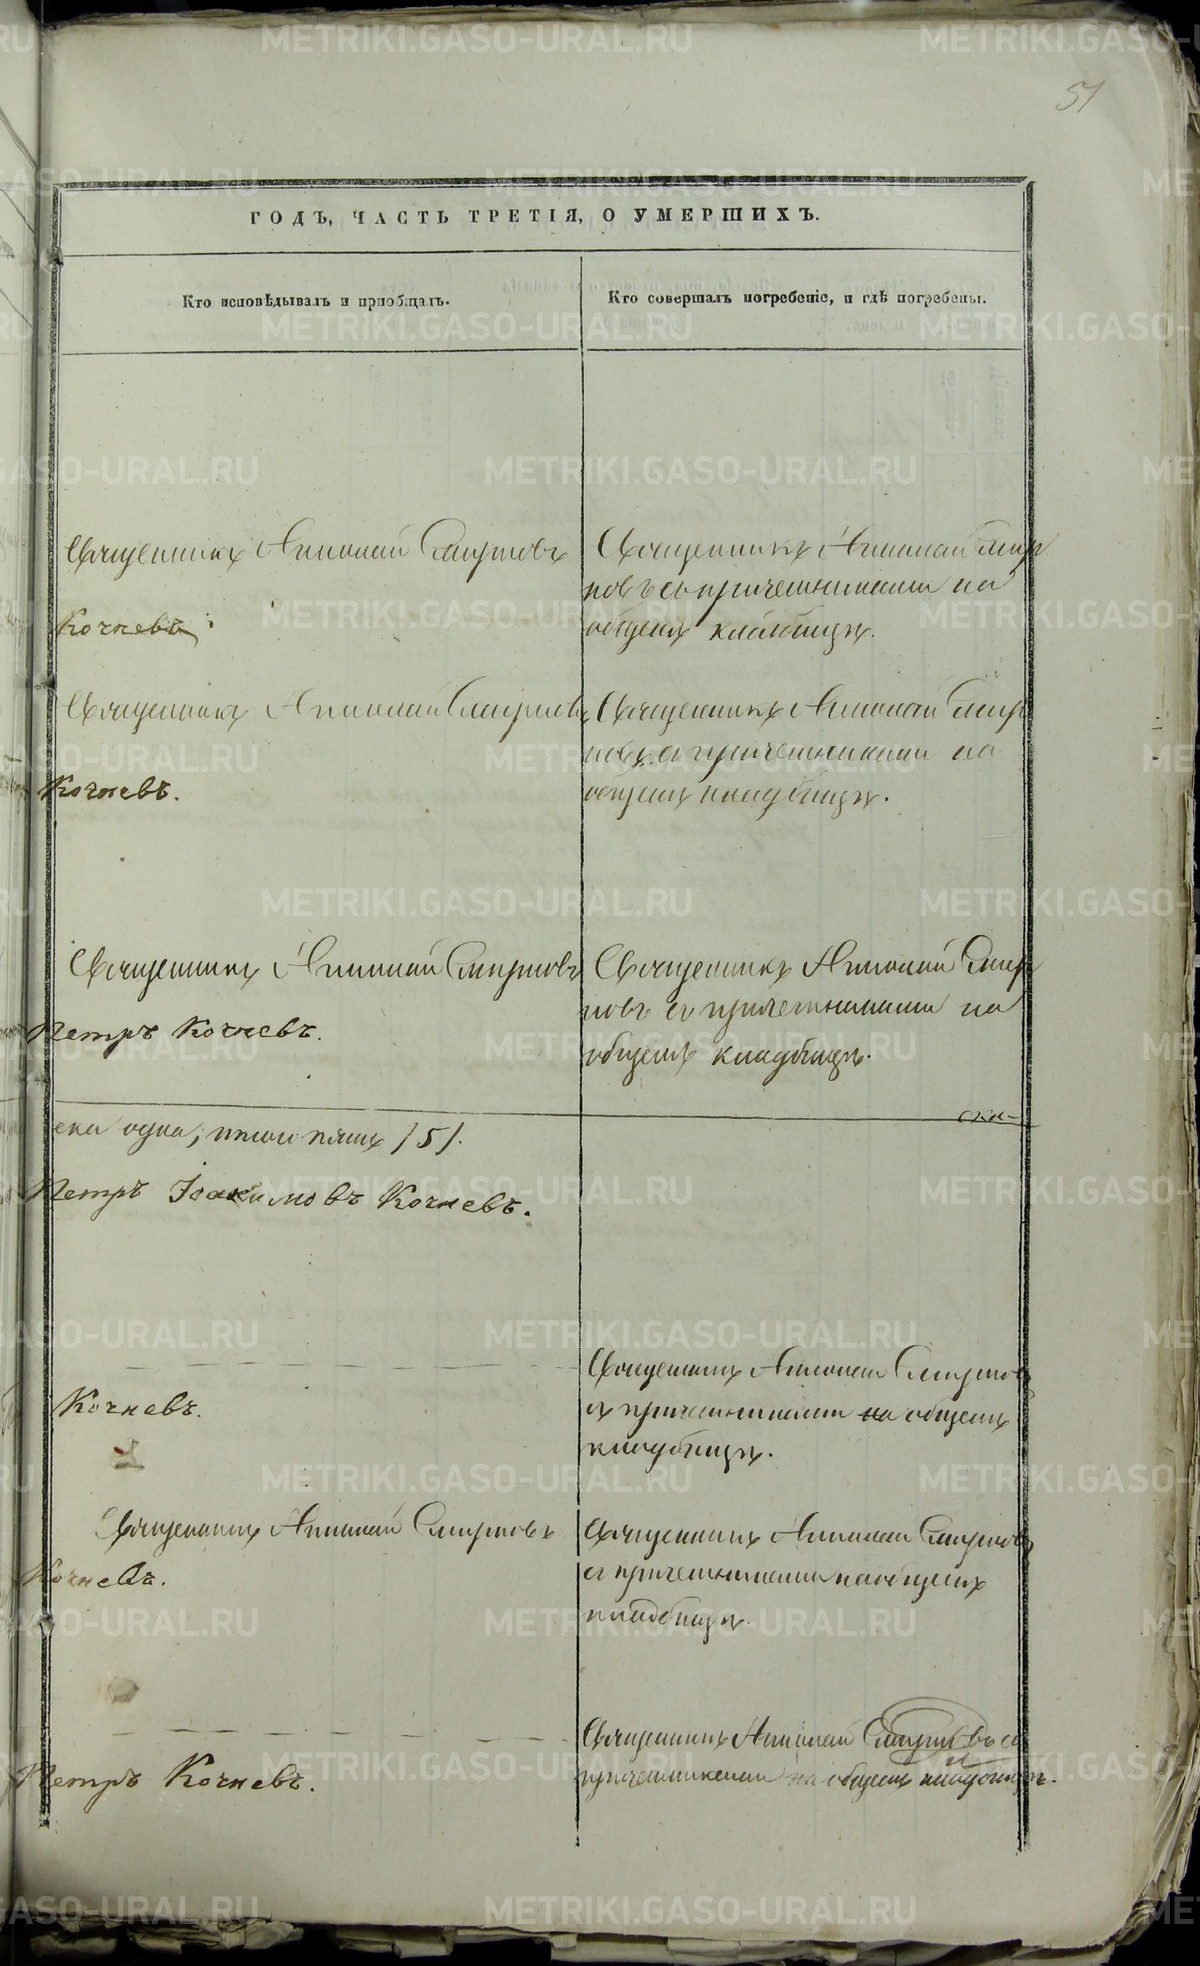 51
ГОДЪ, ЧАСТЬ ТРЕТІЯ, О УМЕРШИХЪ.
Кто исповѣдывалъ и пріобщалъ.
Кто совершалъ погребеніе, и гдѣ погребены.
Священникъ Николай Смирновъ
Кочневъ
Священникъ Николай Смир
новъ съ причетниками на
общемъ кладбищѣ.
Священникъ Николай Смирновъ
Кочневъ.
Священникъ Николай Смир
новъ съ причетниками на
общемъ кладбищѣ.
Священникъ Николай Смирновъ
Петръ Кочневъ.
Священникъ Николай Смир
новъ съ причетниками на
общемъ кладбищѣ.
ска одна, итого пять /5/.
Петръ Іоакимовъ Кочневъ.
Кочневъ.
Священникъ Николай Смирновъ
съ причетниками на общемъ
кладбищѣ.
Священникъ Николай Смирновъ
Кочневъ.
Священникъ Николай Смирновъ
съ причетниками на общемъ
кладбищѣ.
Петръ Кочневъ.
Священникъ Николай Смирновъ съ
причетниками на общемъ кладбищѣ.
METRIKI.GASO-URAL.RU